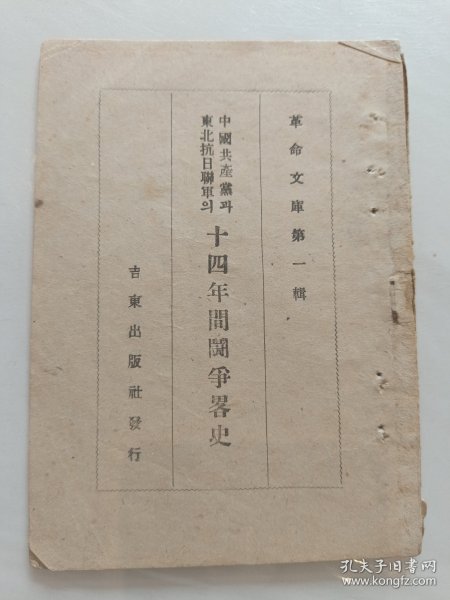 革命文庫第一輯
中國共產黨과
東北抗日聯軍의
十四年間鬪爭畧史
吉東出版社發行
孔夫子旧书网
www.kongfz.com